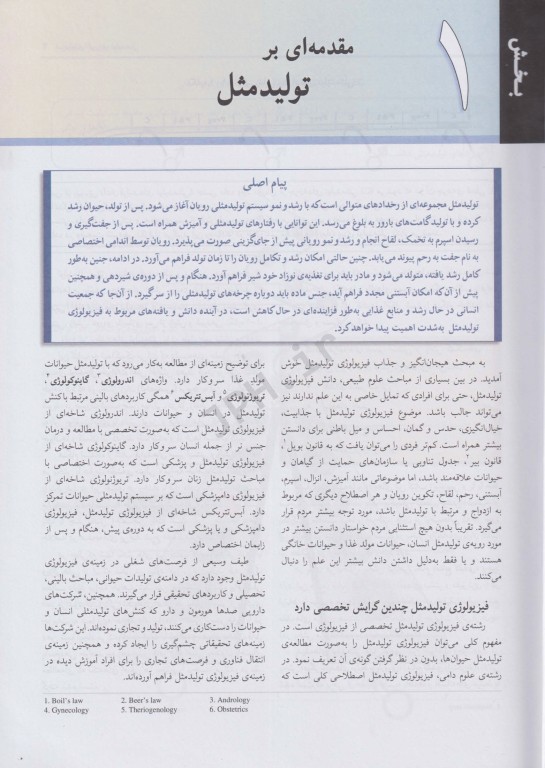 بخش
۱
مقدمه‌ای بر
تولیدمثل
پیام اصلی
تولیدمثل مجموعه‌ای از رخدادهای متوالی است که با رشد و نمو سیستم تولیدمثلی رویان آغاز می‌شود. پس از تولد، حیوان رشد
کرده و با تولید گامت‌های بارور به بلوغ می‌رسد. این توانایی با رفتارهای تولیدمثلی و آمیزش همراه است. پس از جفت‌گیری و
رسیدن اسپرم به تخمک، لقاح انجام و رشد و نمو رویانی پیش از جای‌گزینی صورت می‌پذیرد. رویان توسط اندامی اختصاصی
به نام جفت به رحم پیوند می‌یابد. چنین حالتی امکان رشد و تکامل رویان را تا زمان تولد فراهم می‌آورد. در ادامه، جنین به‌طور
کامل رشد یافته، متولد می‌شود و مادر باید برای تغذیه‌ی نوزاد خود شیر فراهم آورد. هنگام و پس از دوره‌ی شیردهی و همچنین
پیش از آن‌که امکان آبستنی مجدد فراهم آید، جنس ماده باید دوباره چرخه‌های تولیدمثلی را از سر گیرد. از آن‌جا که جمعیت
انسانی در حال رشد و منابع غذایی به‌طور فزاینده‌ای در حال کاهش است، در آینده دانش و یافته‌های مربوط به فیزیولوژی
تولیدمثل به‌شدت اهمیت پیدا خواهد کرد.
به مبحث هیجان‌انگیز و جذاب فیزیولوژی تولیدمثل خوش
آمدید. در بین بسیاری از مباحث علوم طبیعی، دانش فیزیولوژی
تولیدمثل، حتی برای افرادی که تمایل خاصی به این علم ندارند نیز
می‌تواند جالب باشد. موضوع فیزیولوژی تولیدمثل با جذابیت،
خیال‌انگیزی، حدس و گمان، احساس و میل باطنی برای دانستن
بیشتر همراه است. کم‌تر فردی را می‌توان یافت که به قانون بویل۱،
قانون بیر۲، جدول تناوبی یا سازمان‌های حمایت از گیاهان و
حیوانات علاقه‌مند باشد، اما موضوعاتی مانند آمیزش، انزال، اسپرم،
آبستنی، رحم، لقاح، تکوین رویان و هر اصطلاح دیگری که مربوط
به ازدواج و مرتبط با تولیدمثل باشد، مورد توجه بیشتر مردم قرار
می‌گیرد. تقریباً بدون هیچ استثنایی مردم خواستار دانستن بیشتر در
مورد رویه‌ی تولیدمثل انسان، حیوانات مولد غذا و حیوانات خانگی
هستند و یا فقط به‌دلیل داشتن دانش بیشتر این علم را دنبال
می‌کنند.
فیزیولوژی تولیدمثل چندین گرایش تخصصی دارد
رشته‌ی فیزیولوژی تولیدمثل تخصصی از فیزیولوژی است. در
مفهوم کلی می‌توان فیزیولوژی تولیدمثل را به‌صورت مطالعه‌ی
تولیدمثل حیوان‌ها، بدون در نظر گرفتن گونه‌ی آن تعریف نمود. در
رشته‌ی علوم دامی، فیزیولوژی تولیدمثل اصطلاحی کلی است که
برای توضیح زمینه‌ای از مطالعه به‌کار می‌رود که با تولیدمثل حیوانات
مولد غذا سر و کار دارد. واژه‌های اندرولوژی۳، گاینوکولوژی۴،
تریوژنولوژی۵ و آبس‌تتریکس۶ همگی کاربردهای بالینی مرتبط با کنش
تولیدمثل در انسان و حیوانات دارند. اندرولوژی شاخه‌ای از
فیزیولوژی تولیدمثل است که به‌صورت تخصصی با مطالعه و درمان
جنس نر از جمله انسان سر و کار دارد. گاینوکولوژی شاخه‌ای از
فیزیولوژی تولیدمثل و پزشکی است که به‌صورت اختصاصی با
مباحث تولیدمثل زنان سر و کار دارد. تریوژنولوژی شاخه‌ای از
فیزیولوژی دامپزشکی است که بر سیستم تولیدمثلی حیوانات تمرکز
دارد. آبس‌تتریکس شاخه‌ای از فیزیولوژی تولیدمثل، فیزیولوژی
دامپزشکی و یا پزشکی است که به دوره‌ی پیش، هنگام و پس از
زایمان اختصاص دارد.
طیف وسیعی از فرصت‌های شغلی در زمینه‌ی فیزیولوژی
تولیدمثل وجود دارد که در دامنه‌ی تولیدات حیوانی، مباحث بالینی،
تحصیلی و کاربردهای تحقیقاتی قرار می‌گیرند. همچنین، شرکت‌های
دارویی صدها هورمون و دارو که کنش‌های تولیدمثلی انسان و
حیوانات را دست‌کاری می‌کنند، تولید و تجاری نموده‌اند. این شرکت‌ها
زمینه‌های تحقیقاتی چشم‌گیری را ایجاد کرده و همچنین زمینه‌ی
انتقال فناوری و فرصت‌های تجاری را برای افراد آموزش دیده در
زمینه‌ی فیزیولوژی تولیدمثل فراهم آورده‌اند.
1. Boil's law 2. Beer's law 3. Andrology
4. Gynecology 5. Theriogenology 6. Obstetrics